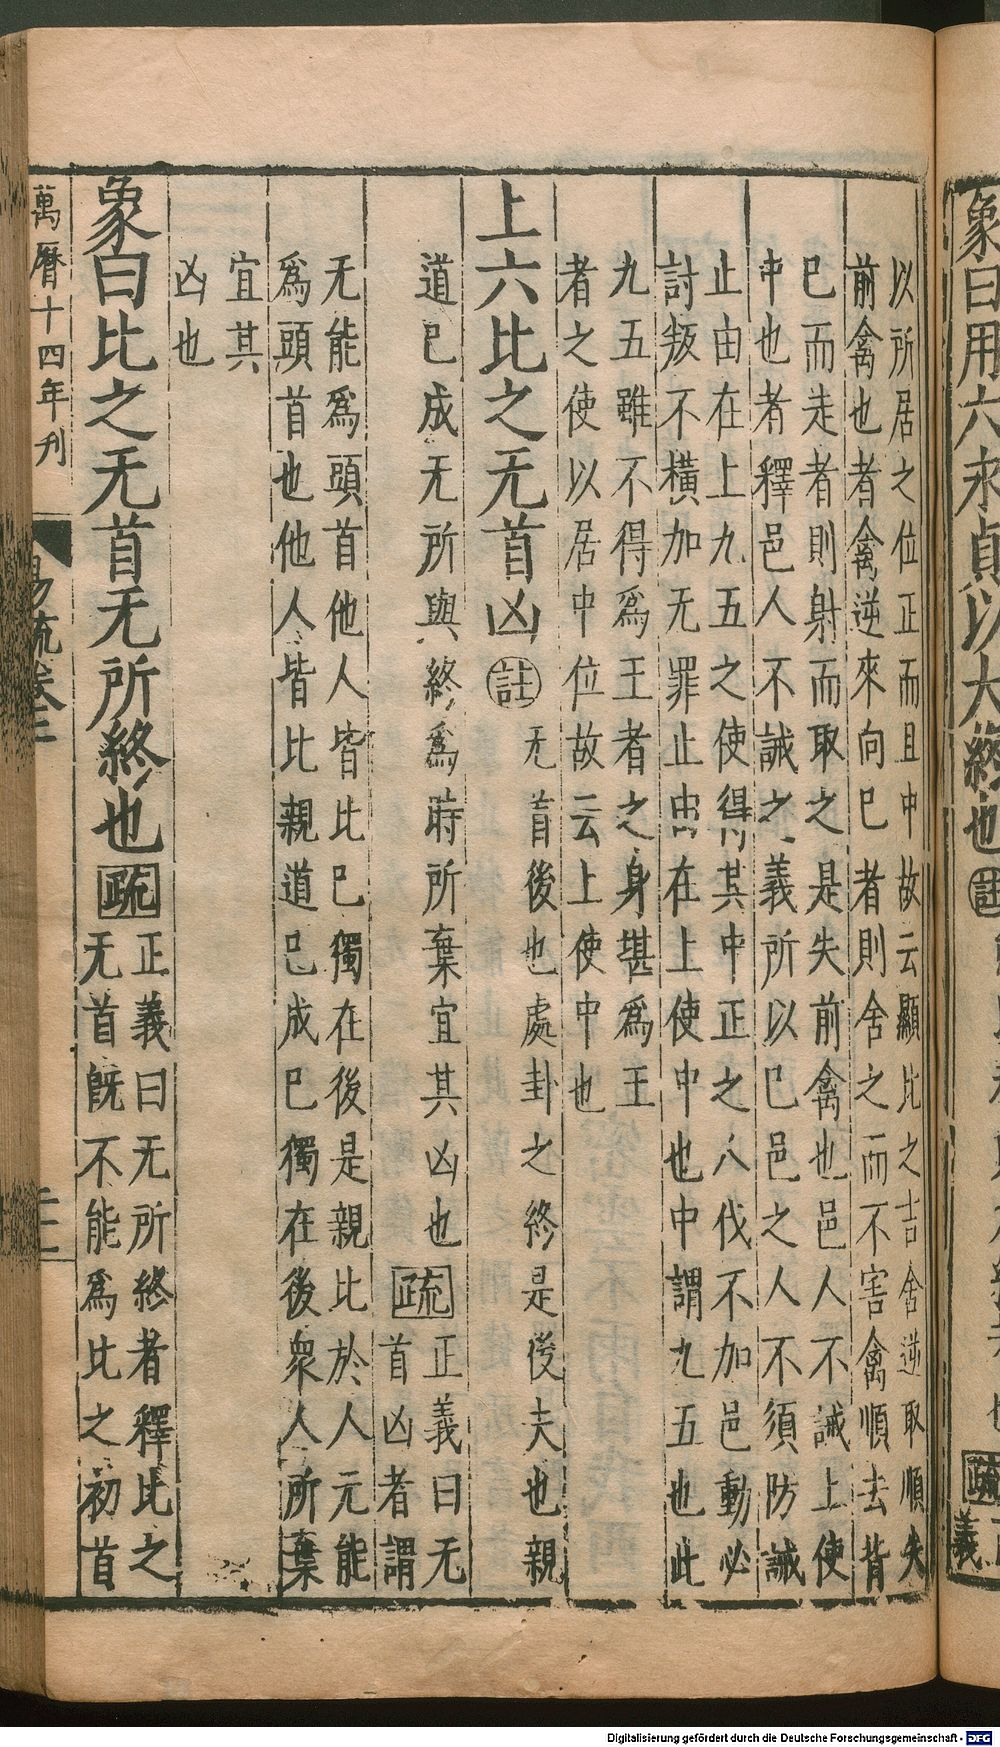 象曰用六永貞以大終也註
疏
義
以所居之位正而且中故云顯比之吉舍逆取順失
前禽也者禽逆來向巳者則舍之而不害禽順去背
巳而走者則射而取之是失前禽也邑人不誡上使
中也者釋邑人不誡之義所以巳邑之人不須防誡
止由在上九五之使得其中正之人伐不加邑動必
討叛不橫加无罪止由在上使中也中謂九五也此
九五雖不得爲王者之身堪爲王
者之使以居中位故云上使中也
上六比之无首凶註
无首後也處卦之終是後夫也親
道巳成无所與終爲時所棄宜其凶也疏
正義曰无
首凶者謂
无能爲頭首他人皆比巳獨在後是親比於人元能
爲頭首也他人皆比親道巳成巳獨在後衆人所棄
宜其
凶也
象曰比之无首无所終也疏
正義曰无所終者釋比之
无首旣不能爲比之初首
萬曆十四年刊
易疏卷二
Digitalisierung gefördert durch die Deutsche Forschungsgemeinschaft - DFG